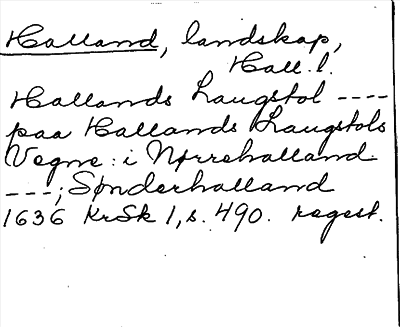 Halland, landskap,
Hall. l.
Hallands Laugstol ----
paa Hallands Laugstols
Vegne: i Nørrehalland
---; Sønderhalland
1636 KrSk 1, s. 490. regest.